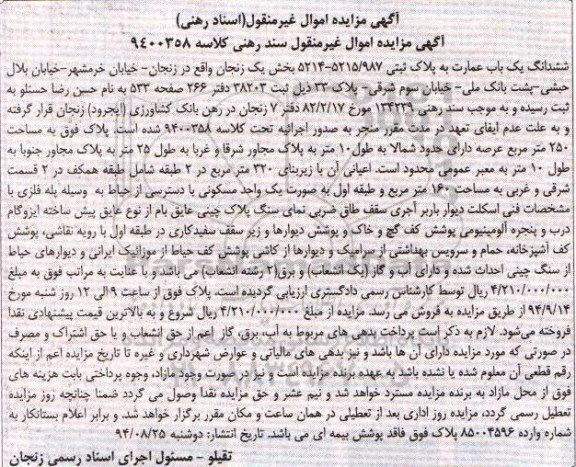 آگهی مزایده اموال غیرمنقول(اسناد رهنی)
آگهی مزایده اموال غیرمنقول سند رهنی کلاسه ۹۴۰۰۳۵۸
ششدانگ یک باب عمارت به پلاک ثبتی ۵۲۱۵/۹۸۷-۵۲۱۴ بخش یک زنجان واقع در زنجان- خیابان خرمشهر-خیابان بلال
حبشی-پشت بانک ملی- خیابان سوم شرقی- پلاک ۳۲ ذیل ثبت ۳۸۲۰۳ دفتر ۲۶۶ صفحه ۵۳۳ به نام حسن رضا حسنلو به
ثبت رسیده و به موجب سند رهنی ۱۳۴۲۳۹ مورخ ۸۲/۲/۱۷ دفتر ۷ زنجان در رهن بانک کشاورزی (ایجرود) زنجان قرار گرفته
و به علت عدم ایفای تعهد در مدت مقرر منجر به صدور اجرائیه تحت کلاسه ۹۴۰۰۳۵۸ شده است. پلاک فوق به مساحت
۲۵۰ متر مربع عرصه دارای حدود شمالا به طول۱۰ متر به پلاک مجاور شرقا و غربا به طول ۲۵ متر به پلاک مجاور جنوبا به
طول ۱۰ متر به معبر عمومی محدود است. اعیانی آن با زیربنای ۳۲۰ متر مربع در ۲ طبقه شامل طبقه همکف در ۲ قسمت
شرقی و غربی به مساحت ۱۶۰ متر مربع و طبقه اول به صورت یک واحد مسکونی با دسترسی از حیاط به وسیله پله فلزی با
مشخصات فنی اسکلت دیوار باربر آجری سقف طاق ضربی نمای سنگ پلاک چینی عایق بام از نوع عایق پیش ساخته ایزوگام
درب و پنجره آلومینیومی پوشش کف گچ و خاک و پوشش دیوارها و زیر سقف سفیدکاری در طبقه اول با رویه نقاشی، پوشش
کف آشپزخانه، حمام و سرویس بهداشتی از سرامیک و دیوارها از کاشی پوشش کف حیاط از موزائیک ایرانی و دیوارهای حیاط
از سنگ چینی احداث شده و دارای آب و گاز (یک انشعاب) و برق(۲ رشته انشعاب) می باشد و با عنایت به مراتب فوق به مبلغ
۴/۲۱۰/۰۰۰/۰۰۰ ریال توسط کارشناس رسمی دادگستری ارزیابی گردیده است. پلاک فوق از ساعت ۹ الی ۱۲ روز شنبه مورخ
۹۴/۹/۱۴ از طریق مزایده به فروش می رسد. مزایده از مبلغ ۴/۲۱۰/۰۰۰/۰۰۰ ریال شروع و به بالاترین قیمت پیشنهادی نقدا
فروخته می‌شود. لازم به ذکر است پرداخت بدهی های مربوط به آب، برق، گاز اعم از حق انشعاب و یا حق اشتراک و مصرف
در صورتی که مورد مزایده دارای آن ها باشد و نیز بدهی های مالیاتی و عوارض شهرداری و غیره تا تاریخ مزایده اعم از اینکه
رقم قطعی آن معلوم شده یا نشده باشد به عهده برنده مزایده است و نیز در صورت وجود مازاد، وجوه پرداختی بابت هزینه های
فوق از محل مازاد به برنده مزایده مسترد خواهد شد و نیم عشر و حق مزایده نقدا وصول می گردد ضمنا چنانچه روز مزایده
تعطیل رسمی گردد، مزایده روز اداری بعد از تعطیلی در همان ساعت و مکان مقرر برگزار خواهد شد. و برابر اعلام بستانکار به
شماره وارده ۸۵۰۰۴۵۹۶ پلاک فوق فاقد پوشش بیمه ای می باشد. تاریخ انتشار: دوشنبه ۹۴/۰۸/۲۵
تقیلو - مسئول اجرای اسناد رسمی زنجان